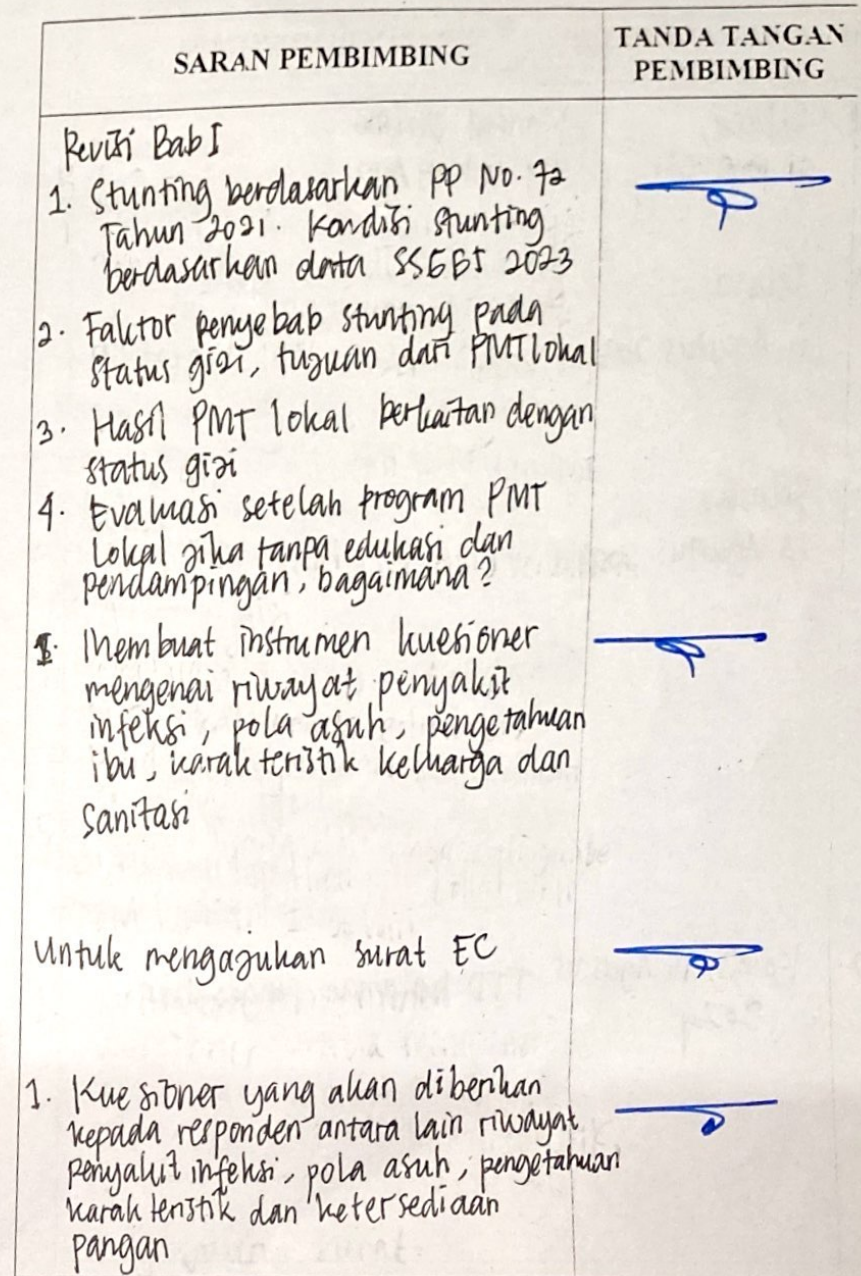 SARAN PEMBIMBING
TANDA TANGAN
PEMBIMBING
Revisi Bab I
1. Stunting berdasarkan PP No. 72
Tahun 2021. Kondisi stunting
berdasarkan data SSGBI 2023
2. Faktor penyebab stunting pada
status gizi, tujuan dari PMT lokal
3. Hasil PMT lokal berkaitan dengan
status gizi
4. Evaluasi setelah program PMT
Lokal jika tanpa edukasi dan
pendampingan, bagaimana?
Membuat instrumen kuesioner
mengenai riwayat penyakit
infeksi, pola asuh, pengetahuan
ibu, karakteristik keluarga dan
sanitasi
Untuk mengajukan surat EC
1. Kuesioner yang akan diberikan
kepada responden antara lain riwayat
penyakit infeksi, pola asuh, pengetahuan
karakteristik dan ketersediaan
pangan